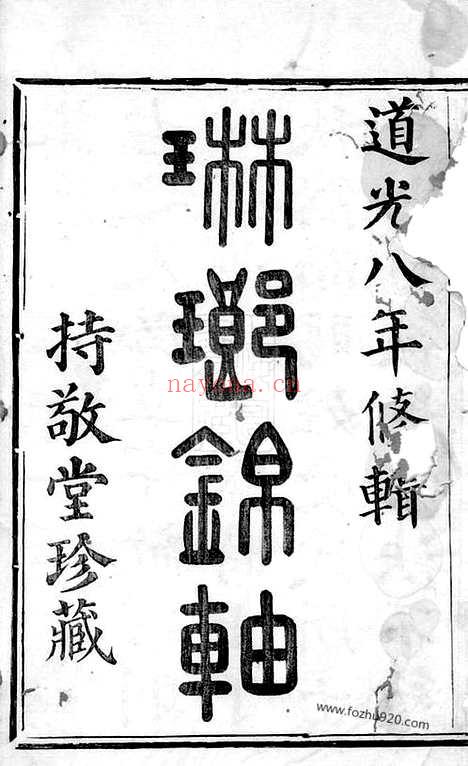 道光八年修輯
琳瑯錦軸
持敬堂珍藏
nayona.cn
www.fozhu920.com